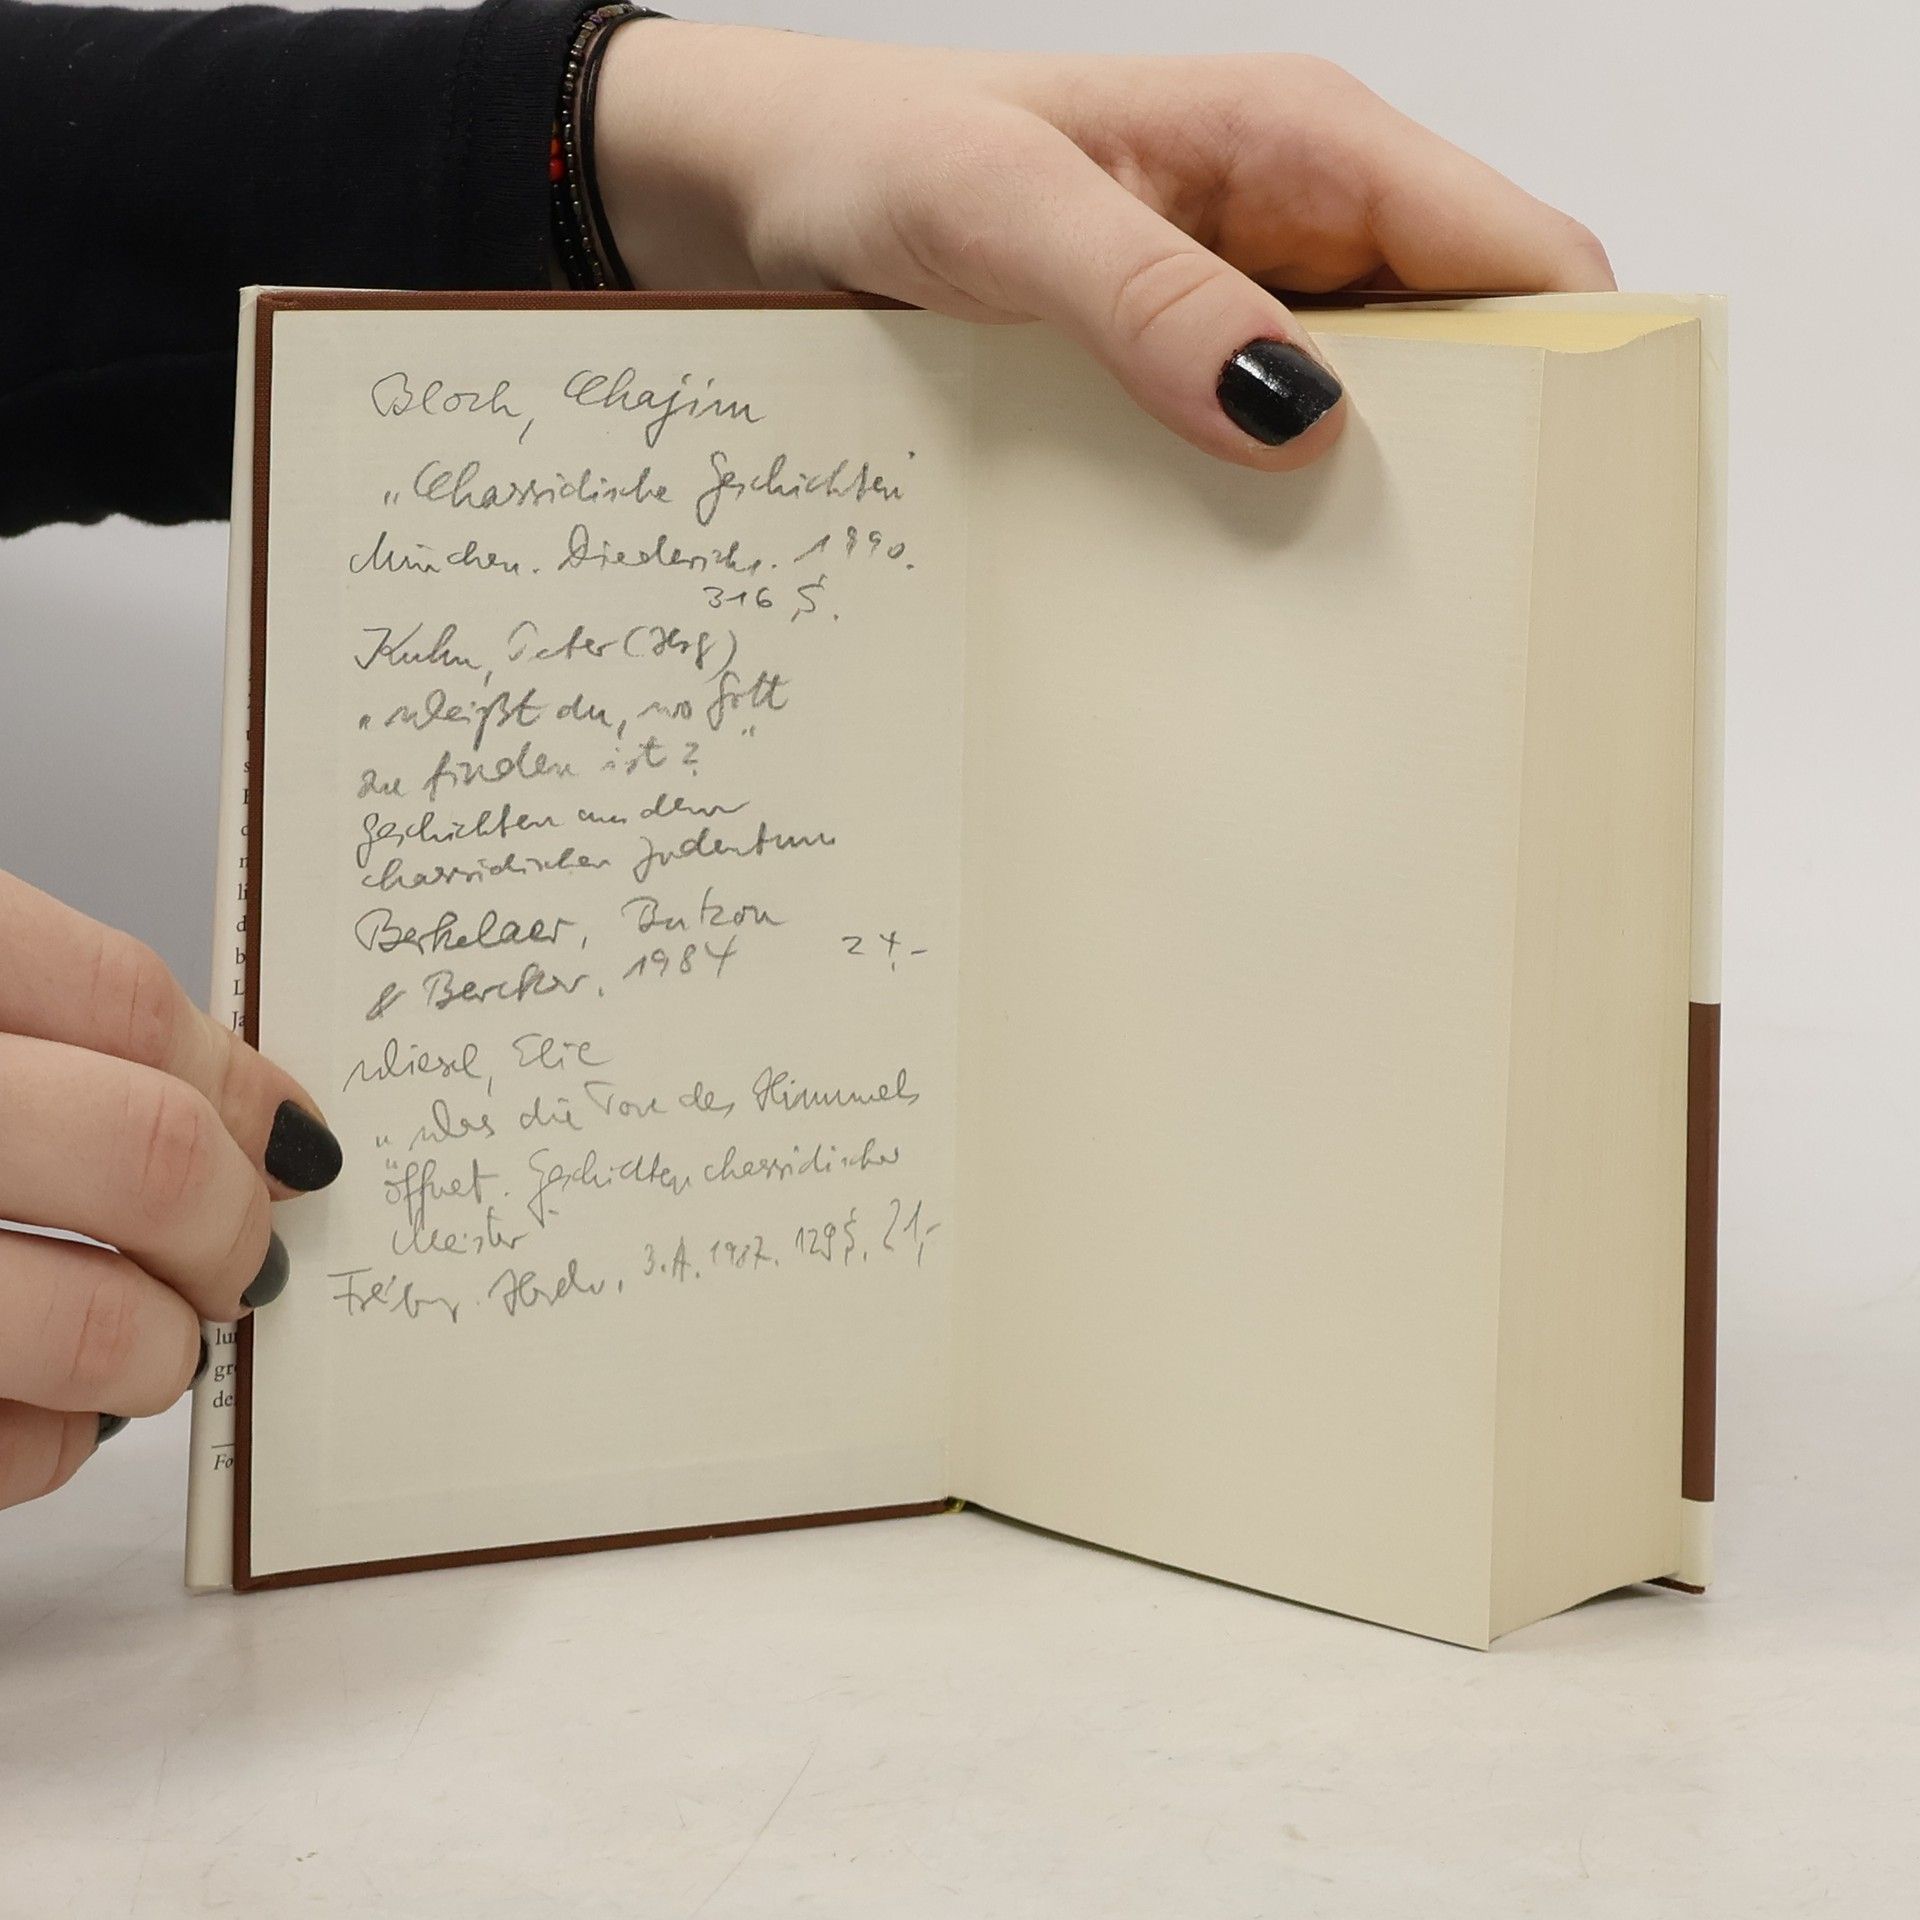 Bloch, Chajim
„Chassidische Geschichten"
München. Diederichs. 1990.
316 S.
Kuhn, Peter (Hrsg)
„Weißt du, wo Gott
zu finden ist?"
Geschichten aus dem
chassidischen Judentum
Berkelaer, Butzon
& Bercker. 1984 24,-
Wiesel, Elie
„Was die Tore des Himmels
öffnet. Geschichten chassidischer
Meister"
Freiburg. Herder. 3. A. 1987. 129 S. 21,-
s
d
li
d
b
L
Ja
lu
gr
de
Fo